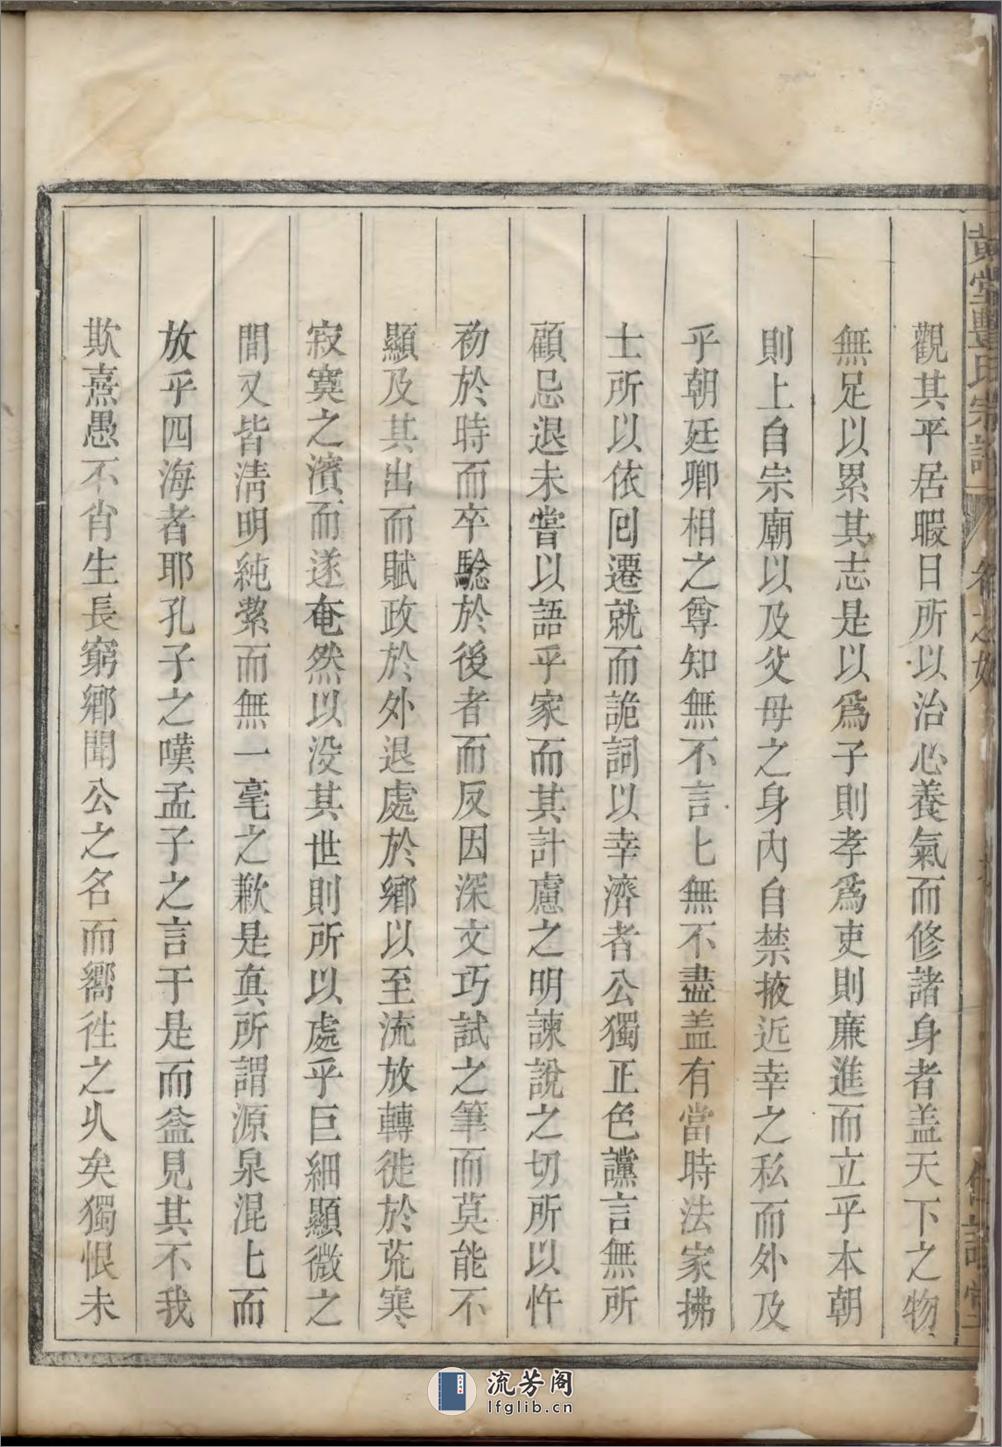 觀其平居暇日所以治心養氣而修諸身者盖天下之物
無足以累其志是以爲子則孝爲吏則廉進而立乎本朝
則上自宗廟以及父母之身內自禁掖近幸之私而外及
乎朝廷卿相之尊知無不言匕無不盡盖有當時法家拂
士所以依回遷就而詭詞以幸濟者公獨正色讜言無所
顧忌退未嘗以語乎家而其計慮之明諫說之切所以忤
初於時而卒騐於後者而反因深文巧試之筆而莫能不
顯及其出而賦政於外退處於鄉以至流放轉徙於荒寒
寂寞之濱而遂奄然以没其世則所以處乎巨細顯微之
間又皆清明純絜而無一毫之歉是真所謂源泉混匕而
放乎四海者耶孔子之嘆孟子之言于是而益見其不我
欺熹愚不肖生長窮鄉聞公之名而嚮徃之乆矣獨恨未
黄堂豐氏宗譜 卷之
流芳阁
lfglib.cn